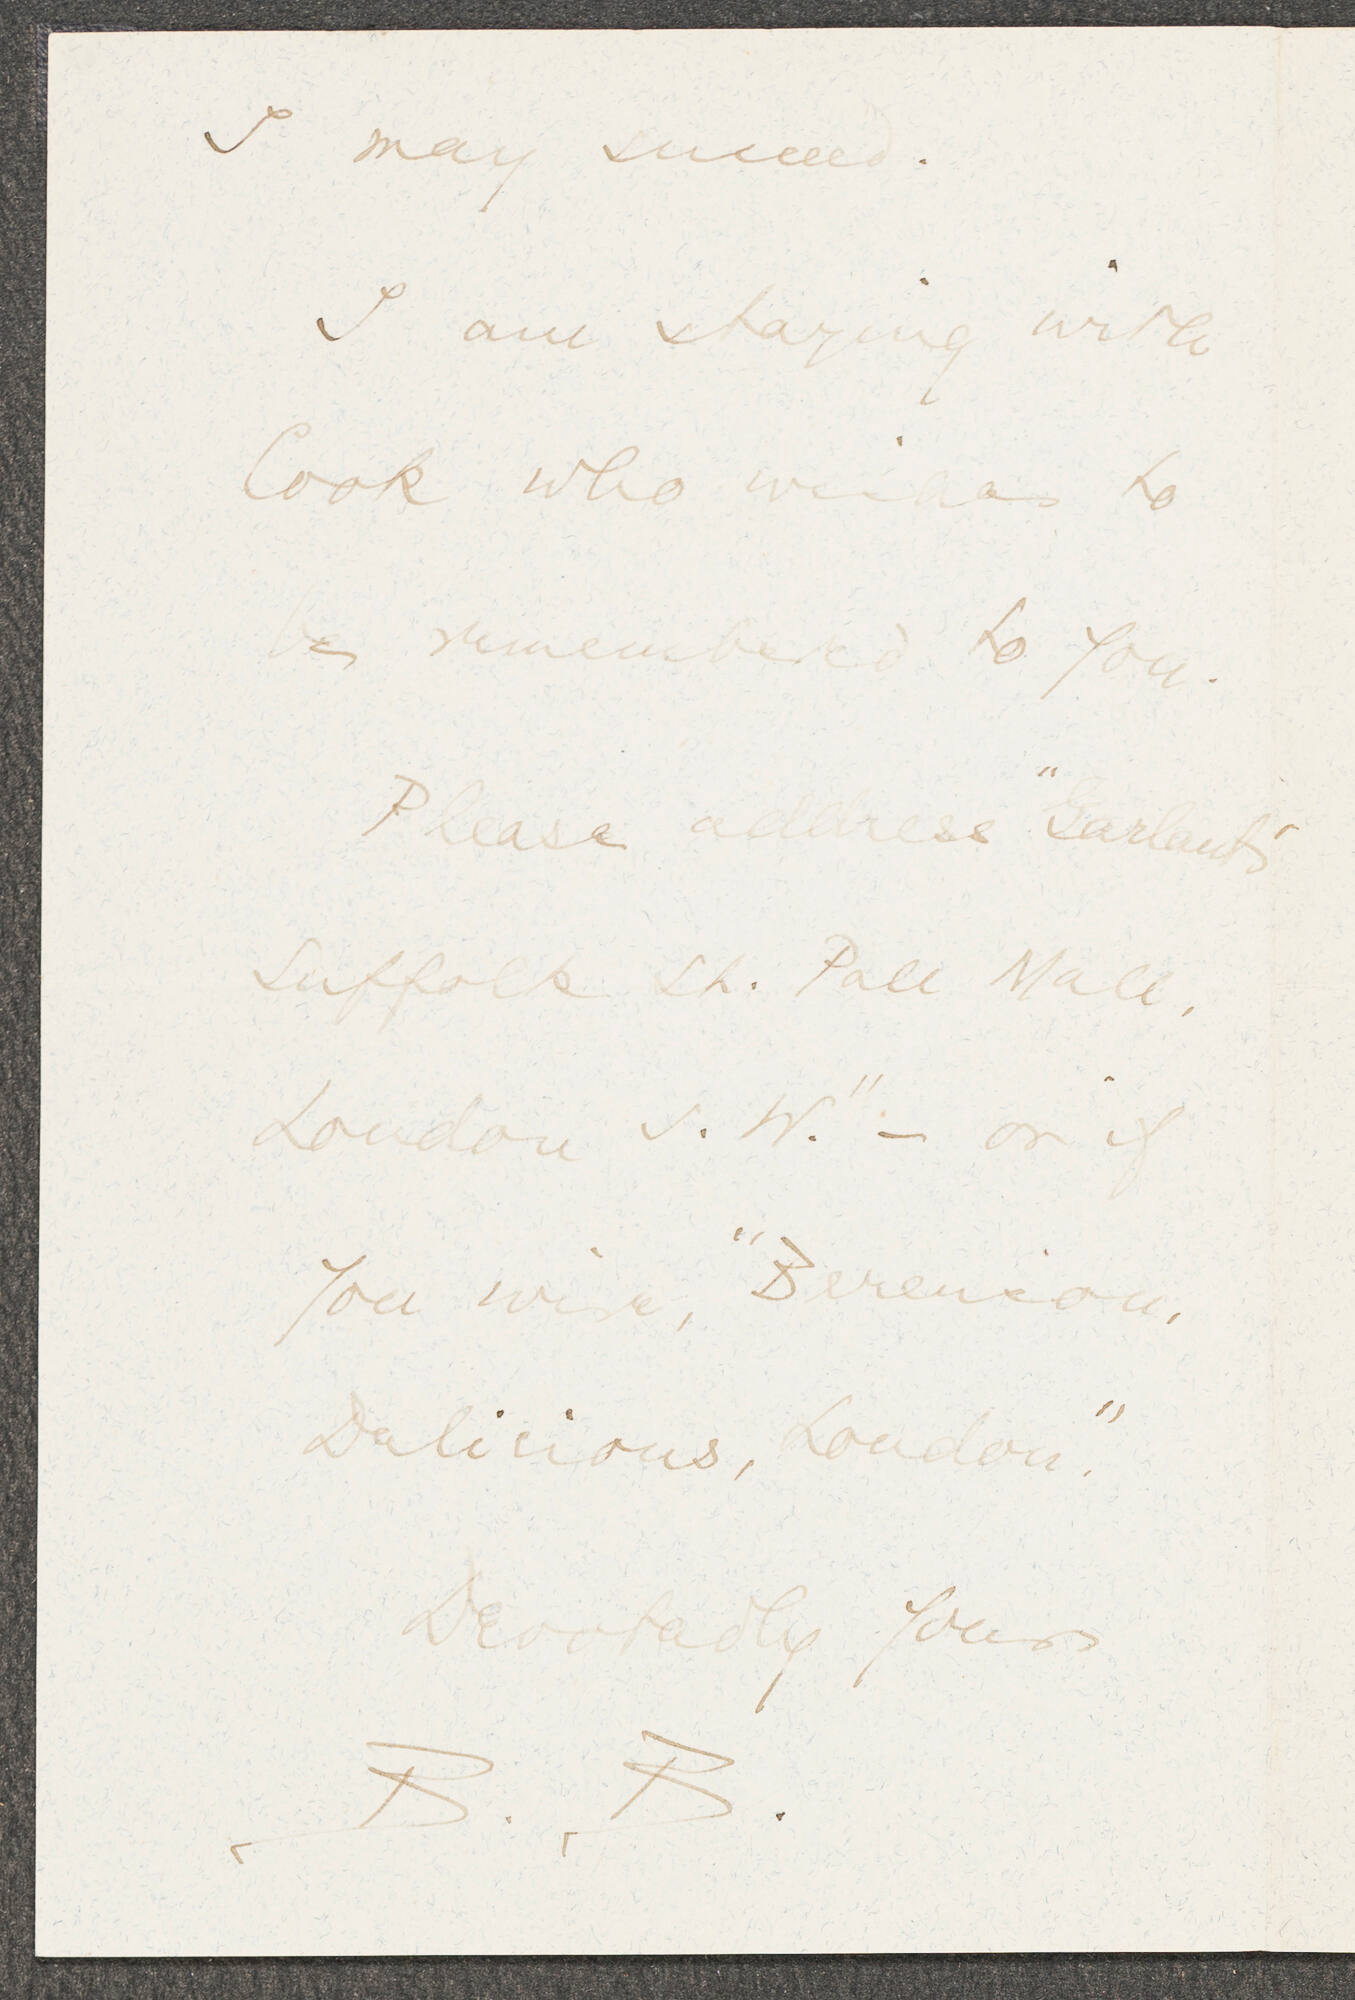 I may succeed.
I am staying with
Cook who wishes to
be remembered to you.
Please address "Garlant's
Suffolk St. Pall Mall,
London S. W." – or if
you wire, "Berenson,
Delicious, London."
Devotedly yours
B. B.